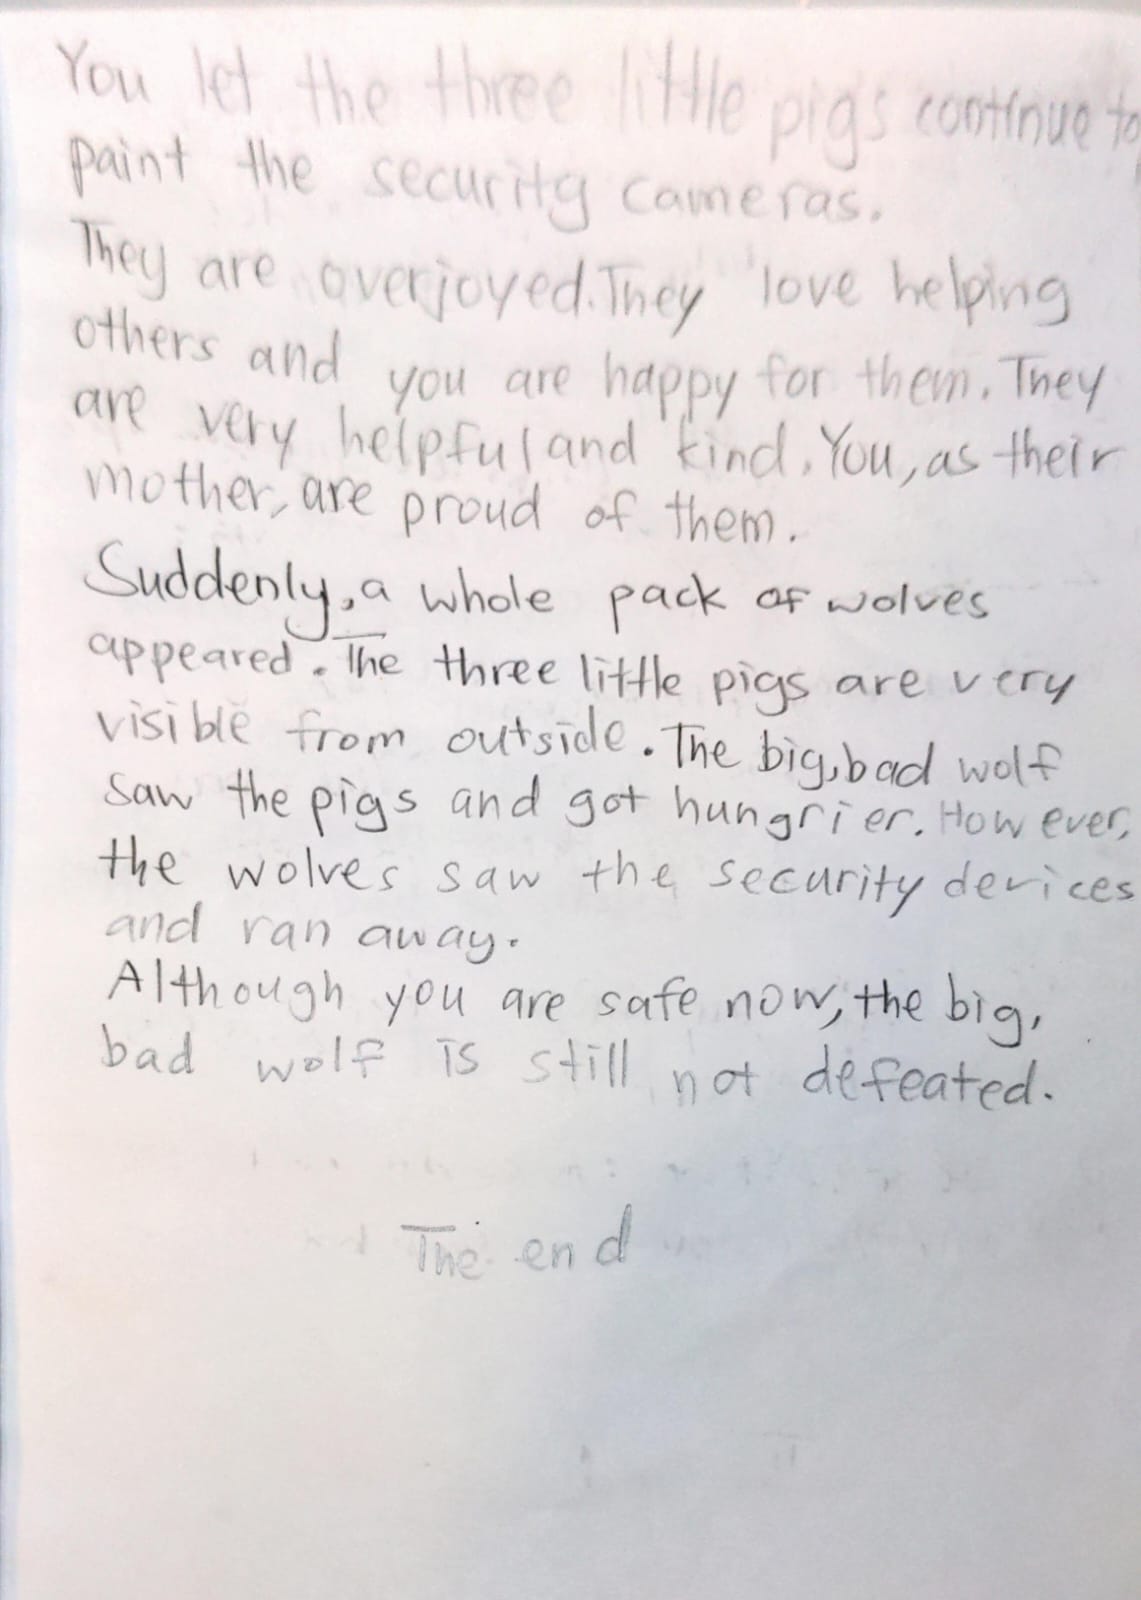 You let the three little pigs continue to
paint the security cameras.
They are overjoyed. They love helping
others and you are happy for them. They
are very helpful and kind. You, as their
mother, are proud of them.
Suddenly, a whole pack of wolves
appeared. The three little pigs are very
visible from outside. The big, bad wolf
saw the pigs and got hungrier. However,
the wolves saw the security devices
and ran away.
Although you are safe now, the big,
bad wolf is still not defeated.
The end